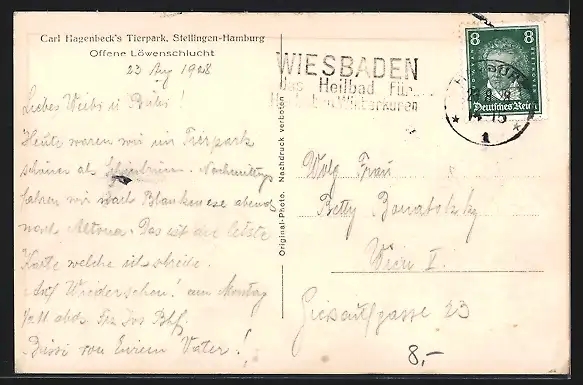 Carl Hagenbeck's Tierpark, Stellingen-Hamburg
Offene Löwenschlucht
23 Aug 1928
Liebes Weibi u Bubi!
Heute waren wir im Tierpark
schöner als Schönbrunn. Nachmittag
fahren wir nach Blankenese abends
nach Altona. Das ist die letzte
Karte welche ich schreibe.
Auf Wiedersehen! am Montag
7h abds Frz Jos Bhf.
Bussi von Eurem Vater!
Original-Photo. Nachdruck verboten
WIESBADEN
Das Heilbad für
Winterkuren
8 8
Deutsches Reich
14-15
* 1 *
Wolg Frau
Betty
Wien I.
23
8,-